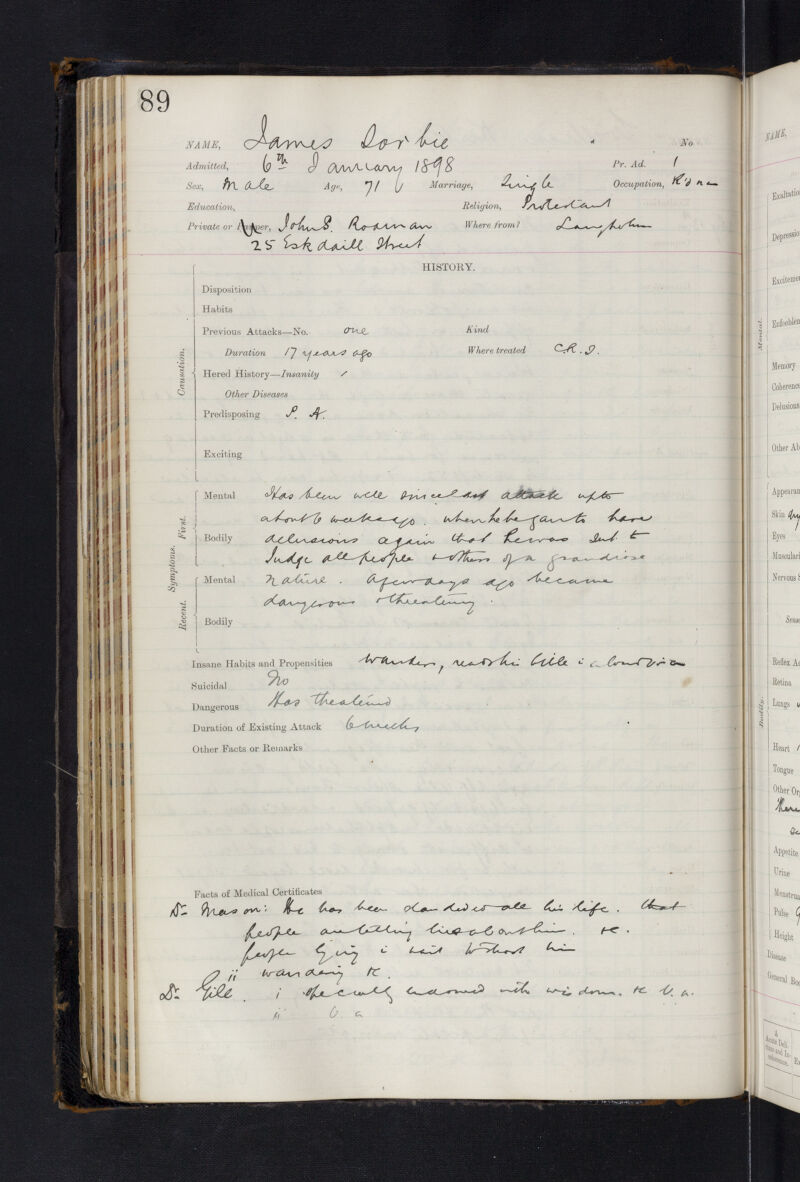 89
NAME, James Sorbie No
Admitted, 6th January 1898 Pr. Ad. 1
Sex, Male Age, 71 Marriage, Single Occupation,
Education, Religion, Protestant
Private or Pauper, John S. Rodman Where from? Langholm
25 Eskdaill Street
HISTORY.
Disposition
Habits
Previous Attacks—No. one Kind
Duration 17 years ago Where treated C.R.I.
Hered History—Insanity
Other Diseases
Predisposing P. A.
Exciting
Causation.
Mental Has been well since last attack up to
about 6 weeks ago. when he began to have
Bodily delusions again that he was sent to
Judge all people & others of a grandiose
Mental nature. A few days ago became
dangerous & threatening.
Bodily
Symptoms. First. Recent.
Insane Habits and Propensities Wanders, reads his bible in a loud voice
Suicidal No
Dangerous Has threatened
Duration of Existing Attack 6 weeks
Other Facts or Remarks
Facts of Medical Certificates
Dr Mason: He has been slandered all his life. that
people are telling lies about him. &c.
people lying in wait to shoot him
ii wandering &c.
Dr Gill. i specially endowed with wisdom. &c U. a.
ii U a
NAME,
Exaltatio
Depressio
Excitemen
Enfeeblem
Mental.
Memory
Coherence
Delusions
Other Ab
Appearan
Skin
Eyes
Muscular
Nervous S
Sens
Reflex Ac
Retina
Lungs
Bodily.
Heart
Tongue
Other Or
Appetite
Urine
Menstrua
Pulse
Height
Disease
General Bod